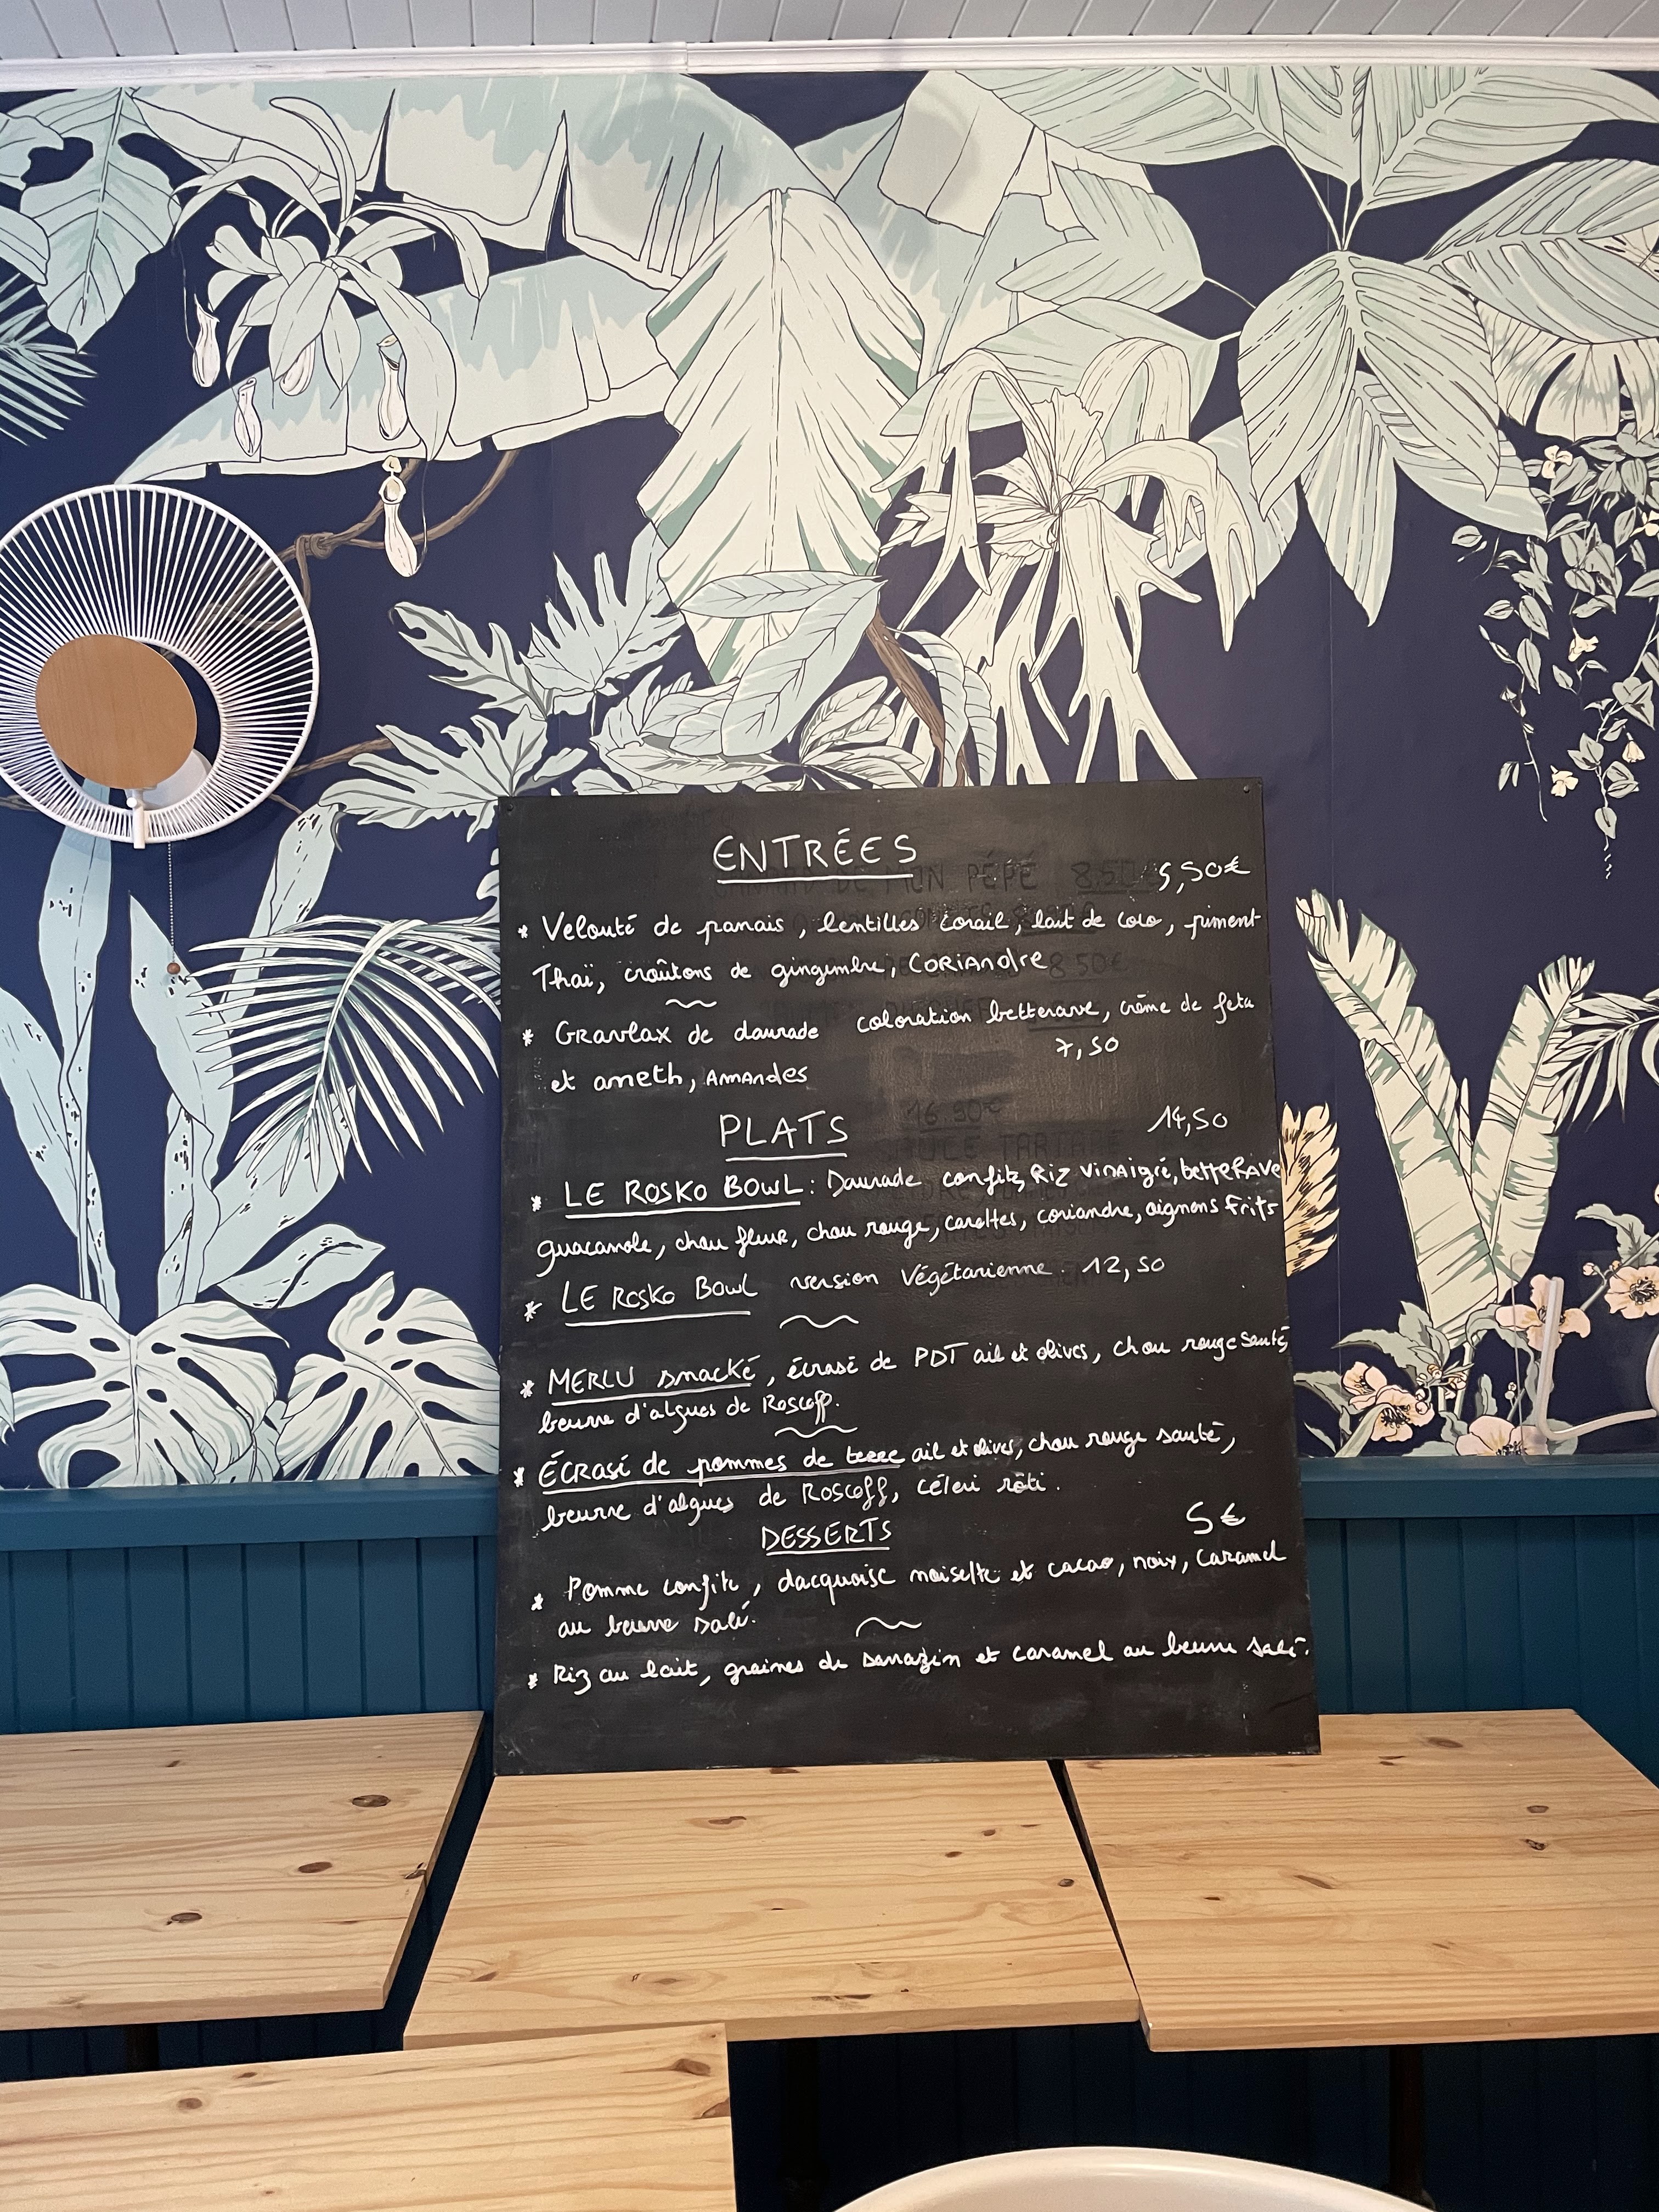 ENTRÉES
5,50€
* Velouté de panais, lentilles corail, lait de coco, piment
Thaï, croûtons de gingembre, CORIANdre
* GRAVLAX de daurade coloration betterave, crème de feta
7,50
et aneth, AMANdes
PLATS
14,50
* LE ROSKO BOWL : Daurade confite, Riz vinaigré, betteRAVe
guacamole, chou fleur, chou rouge, carottes, coriandre, oignons frits
* LE ROSKO BOWL version Végétarienne. 12,50
* MERLU snacké, écrasé de PDT ail et olives, chou rouge sauté,
beurre d'algues de Roscoff.
* ÉCRASÉ de pommes de terre ail et olives, chou rouge sauté,
beurre d'algues de Roscoff, céleri rôti.
DESSERTS
5€
* Pomme confite, dacquoise noisette et cacao, noix, caramel
au beurre salé.
* Riz au lait, graines de sarrazin et caramel au beurre salé.